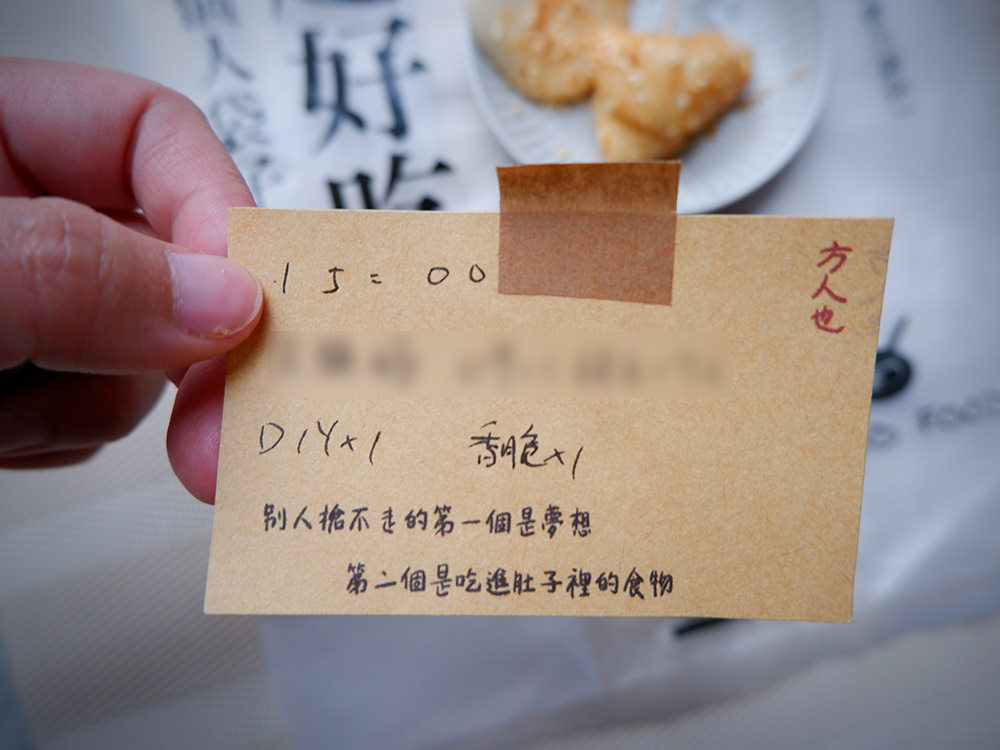 個人袋子
好吃
15=00
方人也
DIY×1 香脆×1
別人搶不走的第一個是夢想
第二個是吃進肚子裡的食物
FOOD